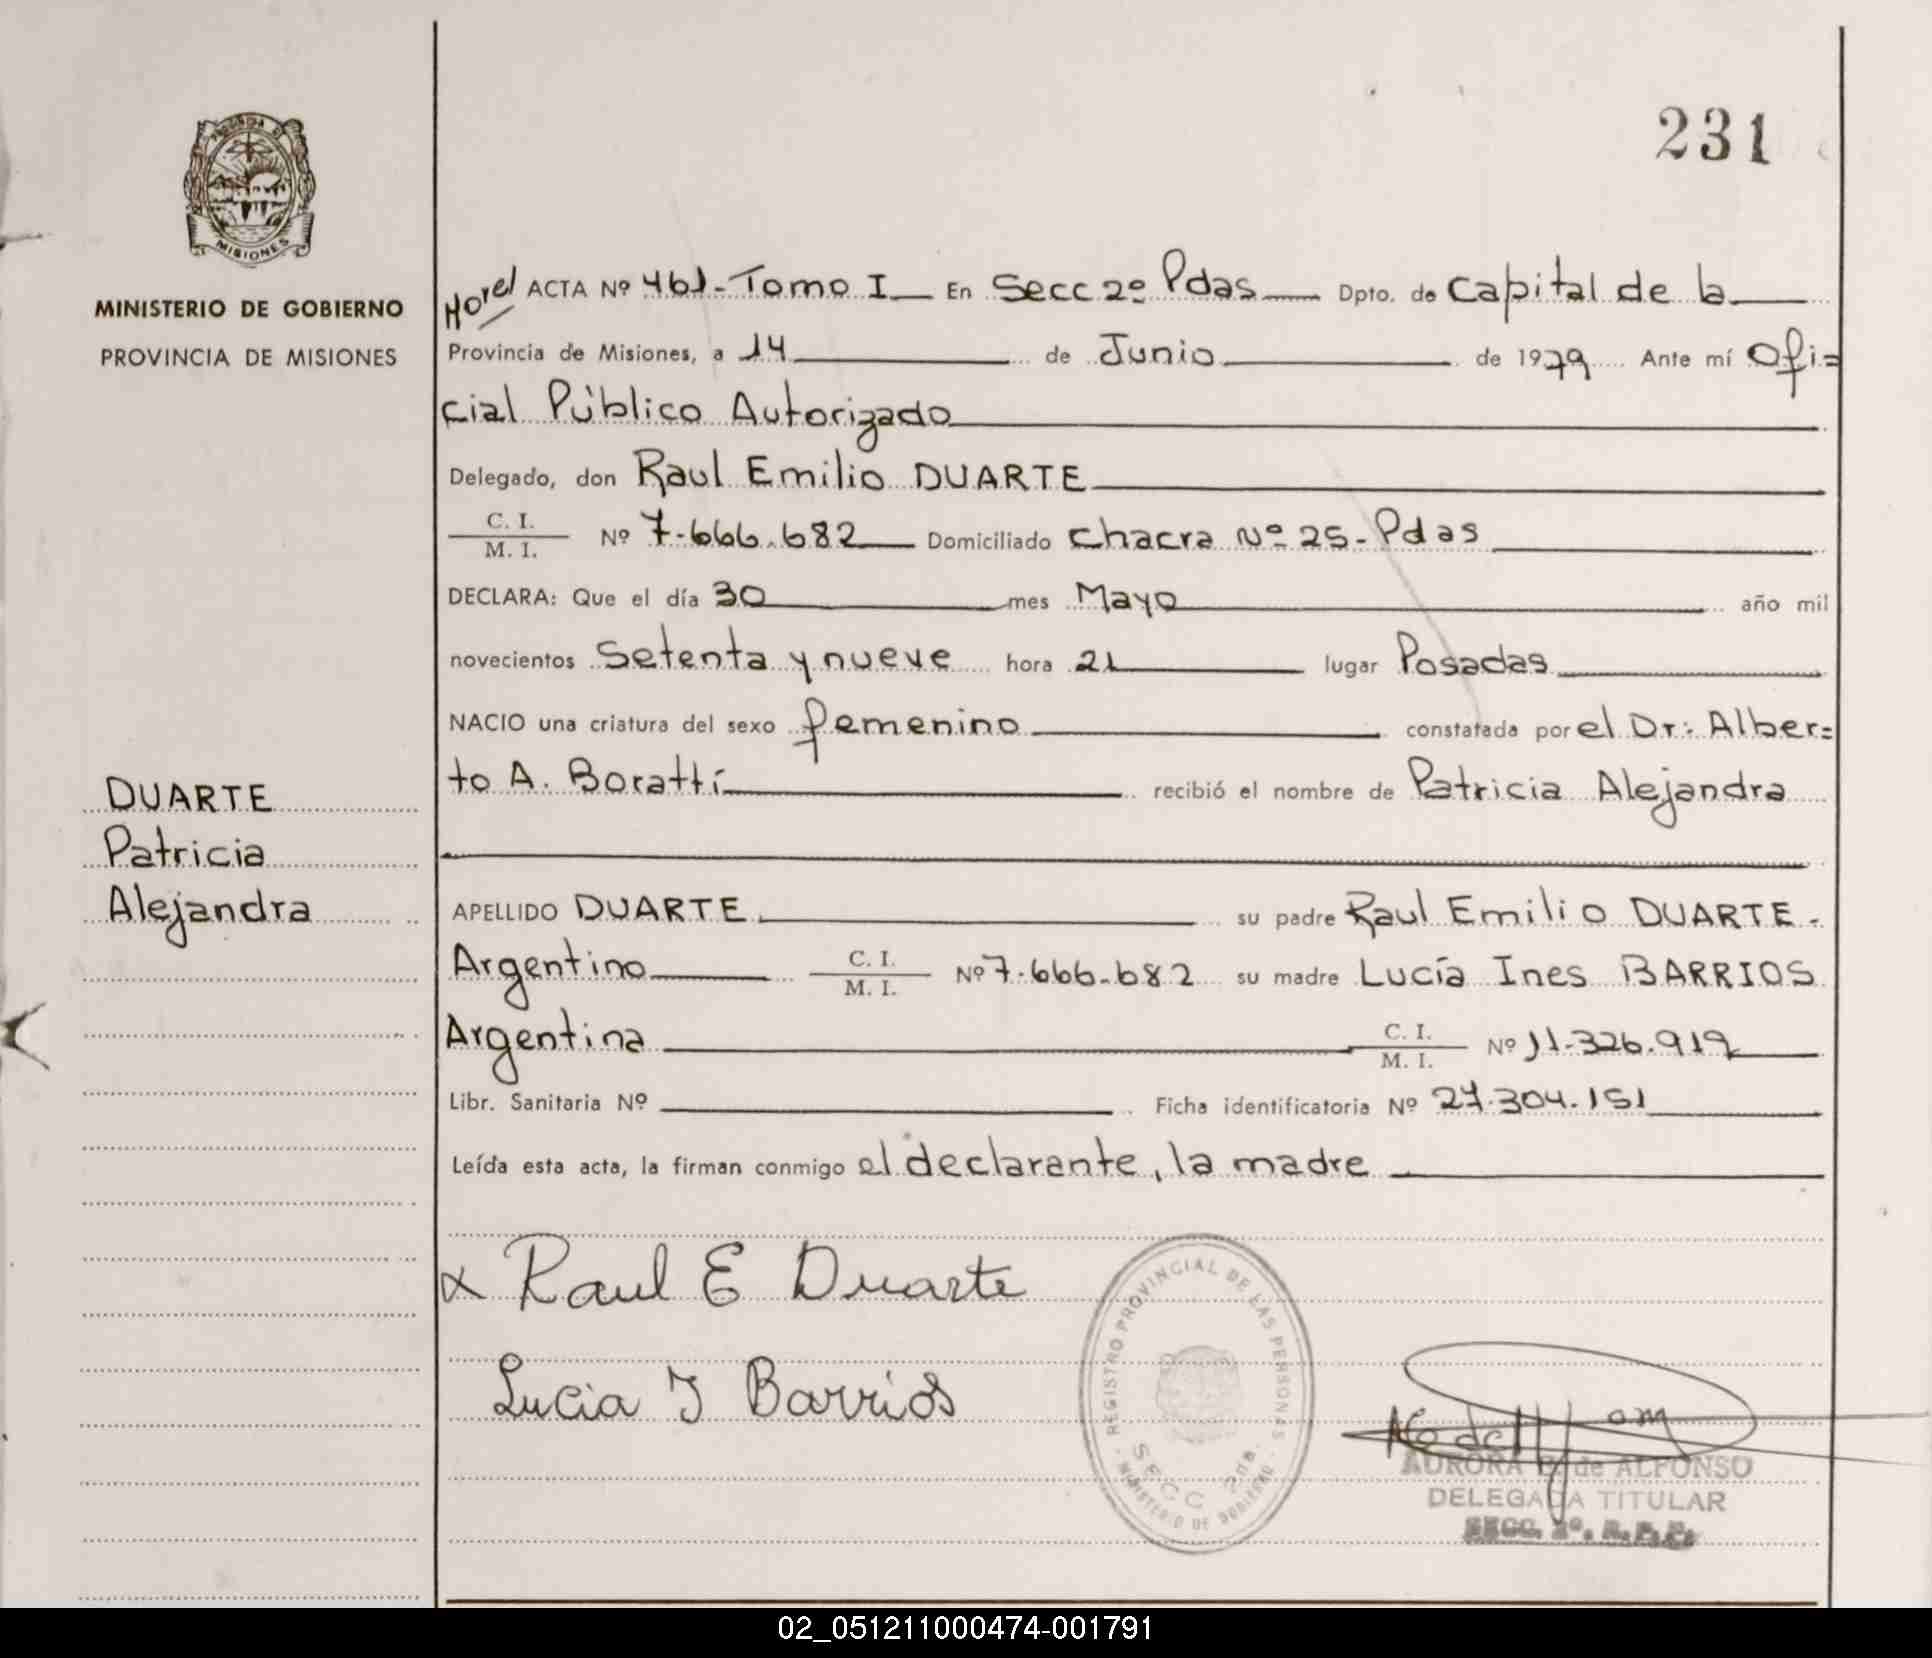 231
PROVINCIA DE
MISIONES
MINISTERIO DE GOBIERNO
PROVINCIA DE MISIONES
ACTA Nº 461-Tomo I En Secc 2º Pdas Dpto. de Capital de la
Provincia de Misiones, a 14 de Junio de 1979 Ante mí Ofi=
cial Público Autorizado
Delegado, don Raul Emilio DUARTE
C. I.
M. I. Nº 7.666.682 Domiciliado Chacra Nº 25-Pdas
DECLARA: Que el día 30 mes Mayo año mil
novecientos Setenta y nueve hora 21 lugar Posadas
NACIO una criatura del sexo femenino constatada por el Dr: Alber=
to A. Boratti recibió el nombre de Patricia Alejandra
DUARTE
Patricia
Alejandra
APELLIDO DUARTE su padre Raul Emilio DUARTE.
Argentino C. I.
M. I. Nº 7.666.682 su madre Lucía Ines BARRIOS
Argentina C. I.
M. I. Nº 11.326.919
Libr. Sanitaria Nº Ficha identificatoria Nº 27.304.151
Leída esta acta, la firman conmigo el declarante, la madre
Raul E Duarte
Lucia I Barrios
REGISTRO PROVINCIAL DE LAS PERSONAS
SECC 2da.
MINISTERIO DE GOBIERNO
AURORA de ALFONSO
DELEGADA TITULAR
SECC. 2º. R.P.P.
02_051211000474-001791